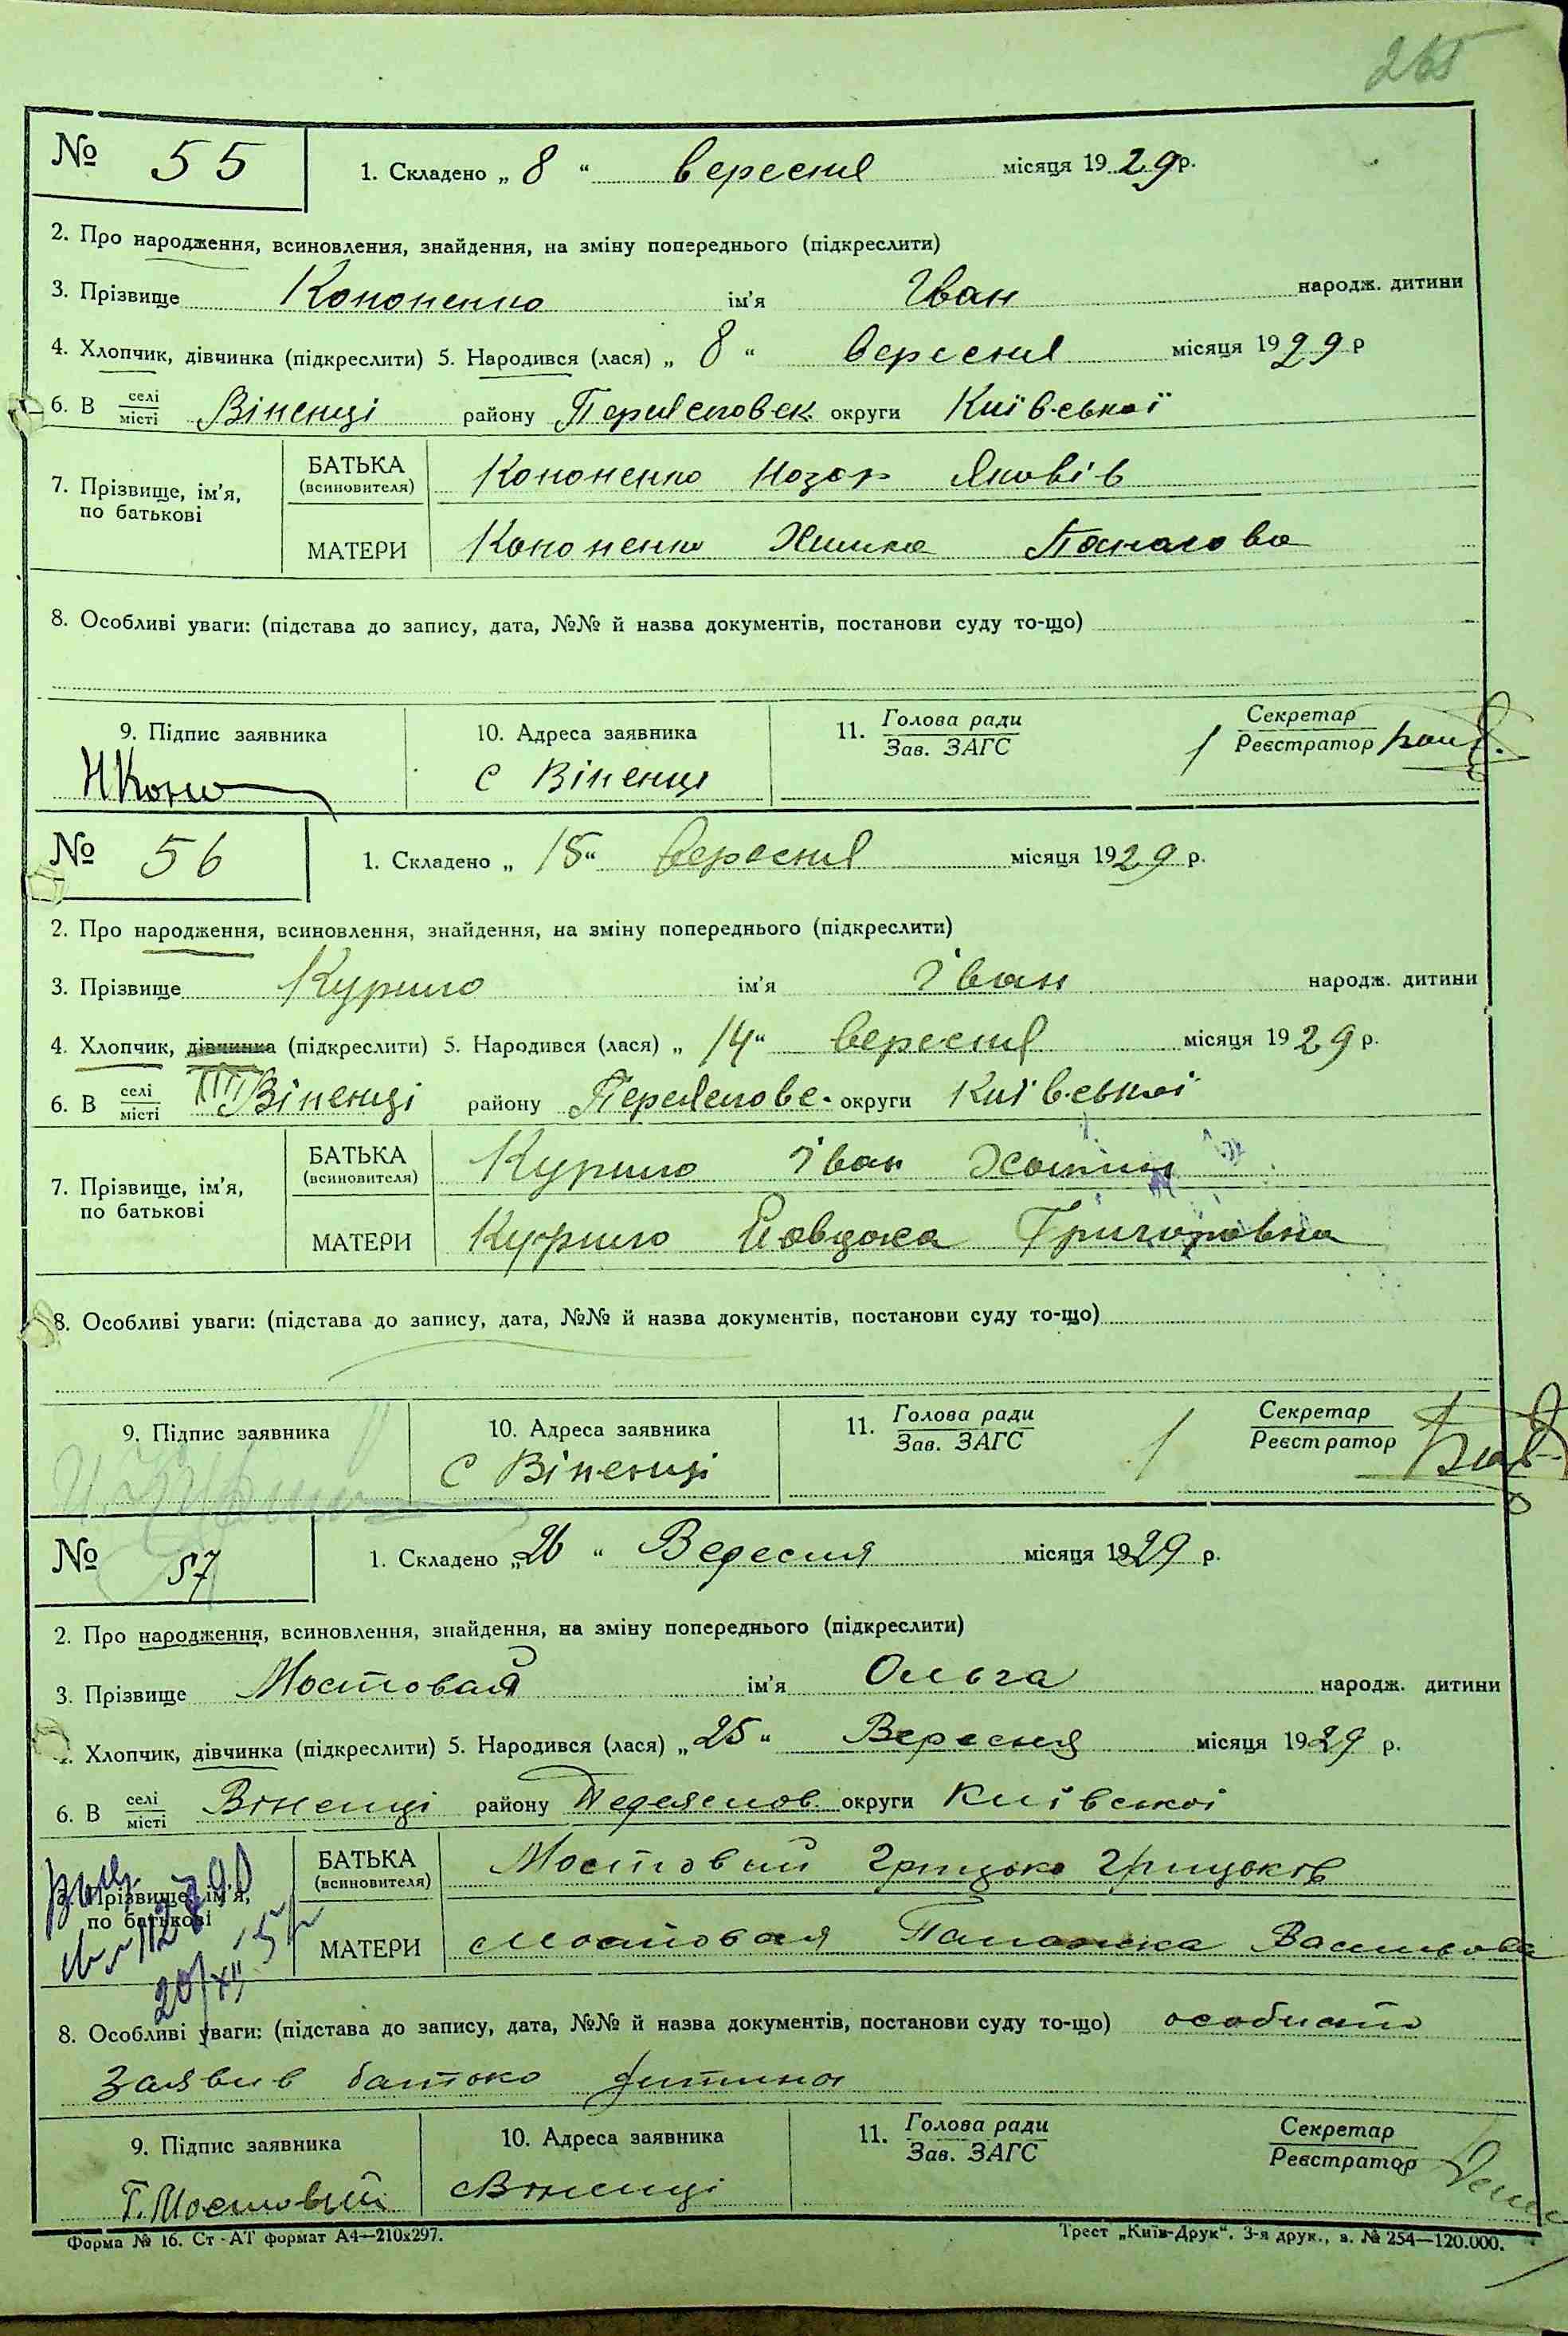 265
№ 55
1. Складено „ 8 “ вересня місяця 1929 р.
2. Про народження, всиновлення, знайдення, на зміну попереднього (підкреслити)
3. Прізвище Кононенко ім'я Іван народж. дитини
4. Хлопчик, дівчинка (підкреслити) 5. Народився (лася) „ 8 “ вересня місяця 1929 р
6. В селі місті Віненці району Переяславськ округи Київської
7. Прізвище, ім'я, по батькові
БАТЬКА (всиновителя) Кононенко Назар Яковів
МАТЕРИ Кононенко Химка Панасова
8. Особливі уваги: (підстава до запису, дата, №№ й назва документів, постанови суду то-що)
9. Підпис заявника 10. Адреса заявника 11. Голова ради Зав. ЗАГС Секретар Реєстратор
Н Коно с Віненці
№ 56
1. Складено „ 15 “ вересня місяця 1929 р.
2. Про народження, всиновлення, знайдення, на зміну попереднього (підкреслити)
3. Прізвище Курило ім'я Іван народж. дитини
4. Хлопчик, дівчинка (підкреслити) 5. Народився (лася) „ 14 “ вересня місяця 1929 р.
6. В селі місті Віненці району Переяслове. округи Київської
7. Прізвище, ім'я, по батькові
БАТЬКА (всиновителя) Курило Іван
МАТЕРИ Курило Явдоха Григоровна
8. Особливі уваги: (підстава до запису, дата, №№ й назва документів, постанови суду то-що)
9. Підпис заявника 10. Адреса заявника 11. Голова ради Зав. ЗАГС Секретар Реєстратор
с Віненці
№ 57
1. Складено „ 26 “ Вересня місяця 1929 р.
2. Про народження, всиновлення, знайдення, на зміну попереднього (підкреслити)
3. Прізвище Мостовая ім'я Ольга народж. дитини
4. Хлопчик, дівчинка (підкреслити) 5. Народився (лася) „ 25 “ Вересня місяця 1929 р.
6. В селі місті Віненці району Переяслов округи Київської
Прізвище, ім'я, по батькові
БАТЬКА (всиновителя) Мостовый Грицько Грицьків
МАТЕРИ Мостовая Палажка Васильова
8. Особливі уваги: (підстава до запису, дата, №№ й назва документів, постанови суду то-що) особисто
Заявив батько дитини
9. Підпис заявника 10. Адреса заявника 11. Голова ради Зав. ЗАГС Секретар Реєстратор
Г. Мостовый с Віненці
Форма № 16. Ст - АТ формат А4—210х297. Трест „Київ-Друк“. 3-я друк., з. № 254—120.000.